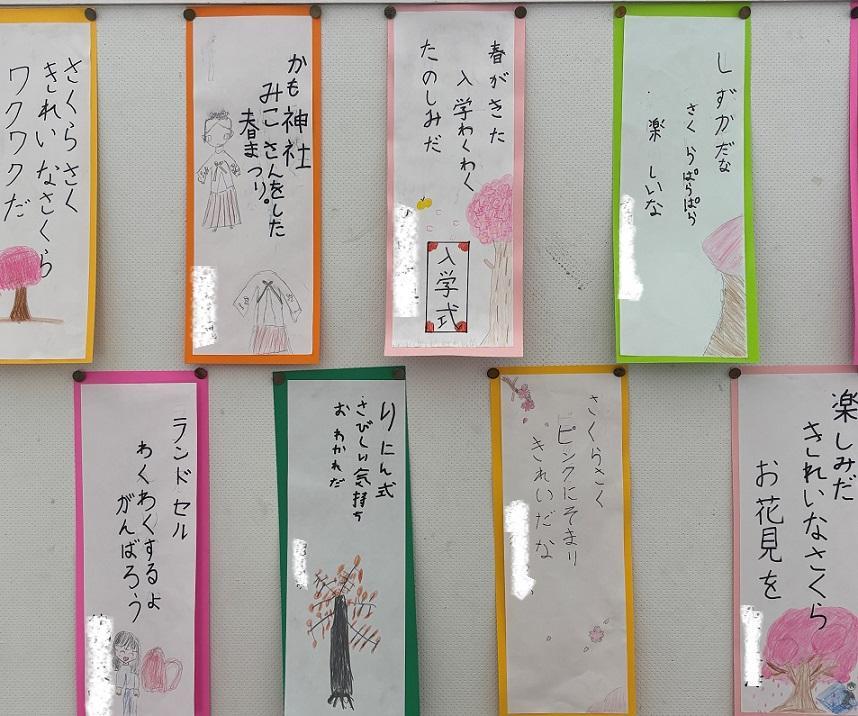 さくらさく
きれいなさくら
ワクワクだ
かも神社
みこさんをした
春まつり。
春がきた
入学わくわく
たのしみだ
入学式
しずかだな
さくらぱらぱら
楽しいな
ランドセル
わくわくするよ
がんばろう
りにん式
さびしい気持ち
おわかれだ
さくらさく
ピンクにそまり
きれいだな
楽しみだ
きれいなさくら
お花見を